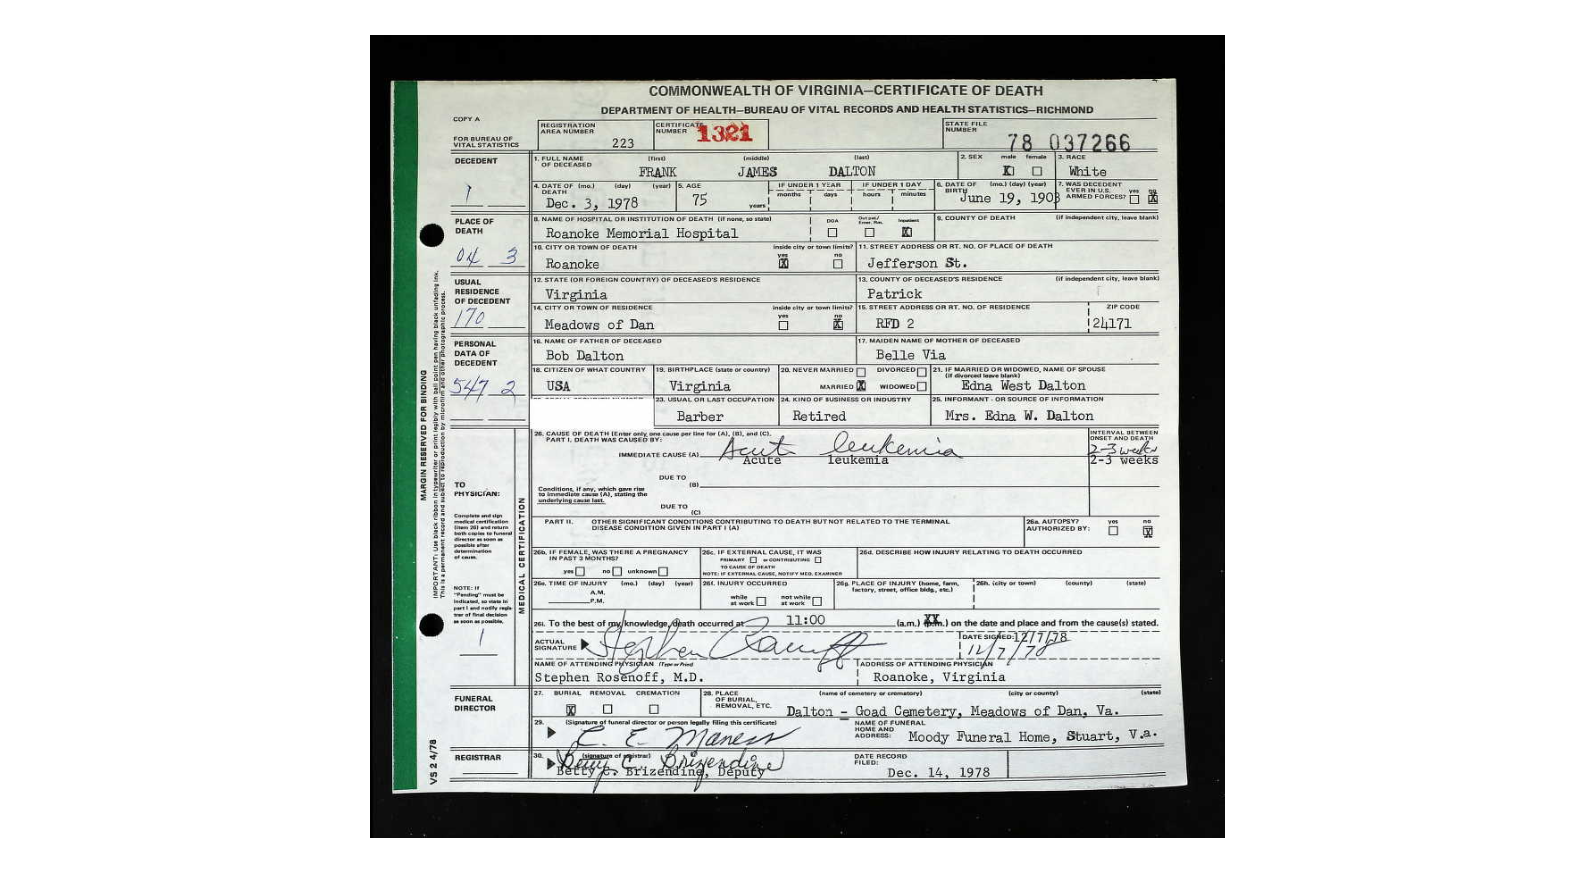 COMMONWEALTH OF VIRGINIA—CERTIFICATE OF DEATH
DEPARTMENT OF HEALTH—BUREAU OF VITAL RECORDS AND HEALTH STATISTICS—RICHMOND
COPY A
FOR BUREAU OF VITAL STATISTICS
REGISTRATION AREA NUMBER 223
CERTIFICATE NUMBER 1321
STATE FILE NUMBER 78 037266
DECEDENT
1. FULL NAME OF DECEASED (first) (middle) (last)
FRANK JAMES DALTON
2. SEX male female X
3. RACE White
4. DATE OF DEATH (mo.) (day) (year)
Dec. 3, 1978
5. AGE 75 years
IF UNDER 1 YEAR months days
IF UNDER 1 DAY hours minutes
6. DATE OF BIRTH (mo.) (day) (year)
June 19, 1903
7. WAS DECEDENT EVER IN U.S. ARMED FORCES? yes no X
PLACE OF DEATH
04 3
8. NAME OF HOSPITAL OR INSTITUTION OF DEATH (if none, so state)
Roanoke Memorial Hospital
DOA Out pat/ Emer. Rm. Inpatient X
9. COUNTY OF DEATH (if independent city, leave blank)
10. CITY OR TOWN OF DEATH inside city or town limits? yes no
Roanoke X
11. STREET ADDRESS OR RT. NO. OF PLACE OF DEATH
Jefferson St.
USUAL RESIDENCE OF DECEDENT
170
12. STATE (OR FOREIGN COUNTRY) OF DECEASED'S RESIDENCE
Virginia
13. COUNTY OF DECEASED'S RESIDENCE (if independent city, leave blank)
Patrick
14. CITY OR TOWN OF RESIDENCE inside city or town limits? yes no
Meadows of Dan X
15. STREET ADDRESS OR RT. NO. OF RESIDENCE ZIP CODE
RFD 2 24171
PERSONAL DATA OF DECEDENT
547 2
16. NAME OF FATHER OF DECEASED
Bob Dalton
17. MAIDEN NAME OF MOTHER OF DECEASED
Belle Via
18. CITIZEN OF WHAT COUNTRY
USA
19. BIRTHPLACE (state or country)
Virginia
20. NEVER MARRIED DIVORCED
MARRIED X WIDOWED
21. IF MARRIED OR WIDOWED, NAME OF SPOUSE (if divorced leave blank)
Edna West Dalton
23. USUAL OR LAST OCCUPATION
Barber
24. KIND OF BUSINESS OR INDUSTRY
Retired
25. INFORMANT - OR SOURCE OF INFORMATION
Mrs. Edna W. Dalton
MARGIN RESERVED FOR BINDING
MEDICAL CERTIFICATION
TO PHYSICIAN:
Complete and sign medical certification (item 26) and return both copies to funeral director as soon as possible after determination of cause.
NOTE: If "Pending" must be indicated, so state in part I and notify registrar of final decision as soon as possible.
26. CAUSE OF DEATH (Enter only one cause per line for (A), (B), and (C).
PART I. DEATH WAS CAUSED BY:
INTERVAL BETWEEN ONSET AND DEATH
IMMEDIATE CAUSE (A) Acute leukemia 2-3 weeks
Acute leukemia 2-3 weeks
DUE TO (B)
Conditions, if any, which gave rise to immediate cause (A), stating the underlying cause last.
DUE TO (C)
PART II. OTHER SIGNIFICANT CONDITIONS CONTRIBUTING TO DEATH BUT NOT RELATED TO THE TERMINAL DISEASE CONDITION GIVEN IN PART I (A)
26a. AUTOPSY? AUTHORIZED BY: yes no X
26b. IF FEMALE, WAS THERE A PREGNANCY IN PAST 3 MONTHS?
yes no unknown
26c. IF EXTERNAL CAUSE, IT WAS
PRIMARY or CONTRIBUTING
TO CAUSE OF DEATH
NOTE: IF EXTERNAL CAUSE, NOTIFY MED. EXAMINER
26d. DESCRIBE HOW INJURY RELATING TO DEATH OCCURRED
26e. TIME OF INJURY (mo.) (day) (year)
A.M.
P.M.
26f. INJURY OCCURRED
while at work not while at work
26g. PLACE OF INJURY (home, farm, factory, street, office bldg., etc.)
26h. (city or town) (county) (state)
26i. To the best of my knowledge, death occurred at 11:00 (a.m.) XX on the date and place and from the cause(s) stated.
ACTUAL SIGNATURE
DATE SIGNED: 12/7/78
12/7/78
NAME OF ATTENDING PHYSICIAN (Type or Print)
Stephen Rosenoff, M.D.
ADDRESS OF ATTENDING PHYSICIAN
Roanoke, Virginia
FUNERAL DIRECTOR
27. BURIAL REMOVAL CREMATION
X
28. PLACE OF BURIAL, REMOVAL, ETC. (name of cemetery or crematory) (city or county) (state)
Dalton - Goad Cemetery, Meadows of Dan, Va.
29. (Signature of funeral director or person legally filing this certificate)
C. E. Maness
NAME OF FUNERAL HOME AND ADDRESS:
Moody Funeral Home, Stuart, V.a.
REGISTRAR
30. (signature of registrar)
Betty C. Brizendine
Betty C. Brizendine, Deputy
DATE RECORD FILED:
Dec. 14, 1978
VS 2 4/78